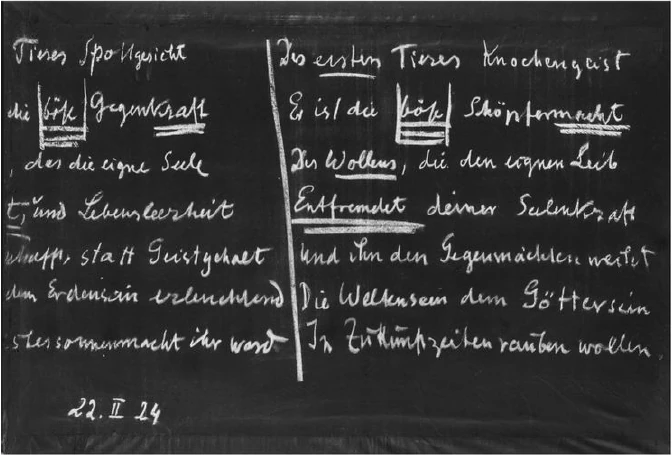 Tieres Spottgesicht
die böse Gegenkraft
, das die eigne Seele
t, und Lebensleerheit
chafft, statt Geistgehalt
dem Erdensein erleuchtend
stessonnenmacht ihr ward
22. II 24
Des ersten Tieres Knochengeist
Er ist die böse Schöpfermacht
Des Wollens, die den eignen Leib
Entfremdet deiner Seelenkraft
Und ihn den Gegenmächten weihet
Die Weltensein dem Göttersein
In Zukunftzeiten rauben wollen.